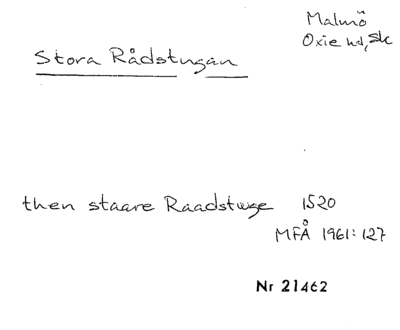 Malmö
Oxie hd, Sk
Stora Rådstugan
then staare Raadstwge 1520
MFÅ 1961:127
Nr 21462